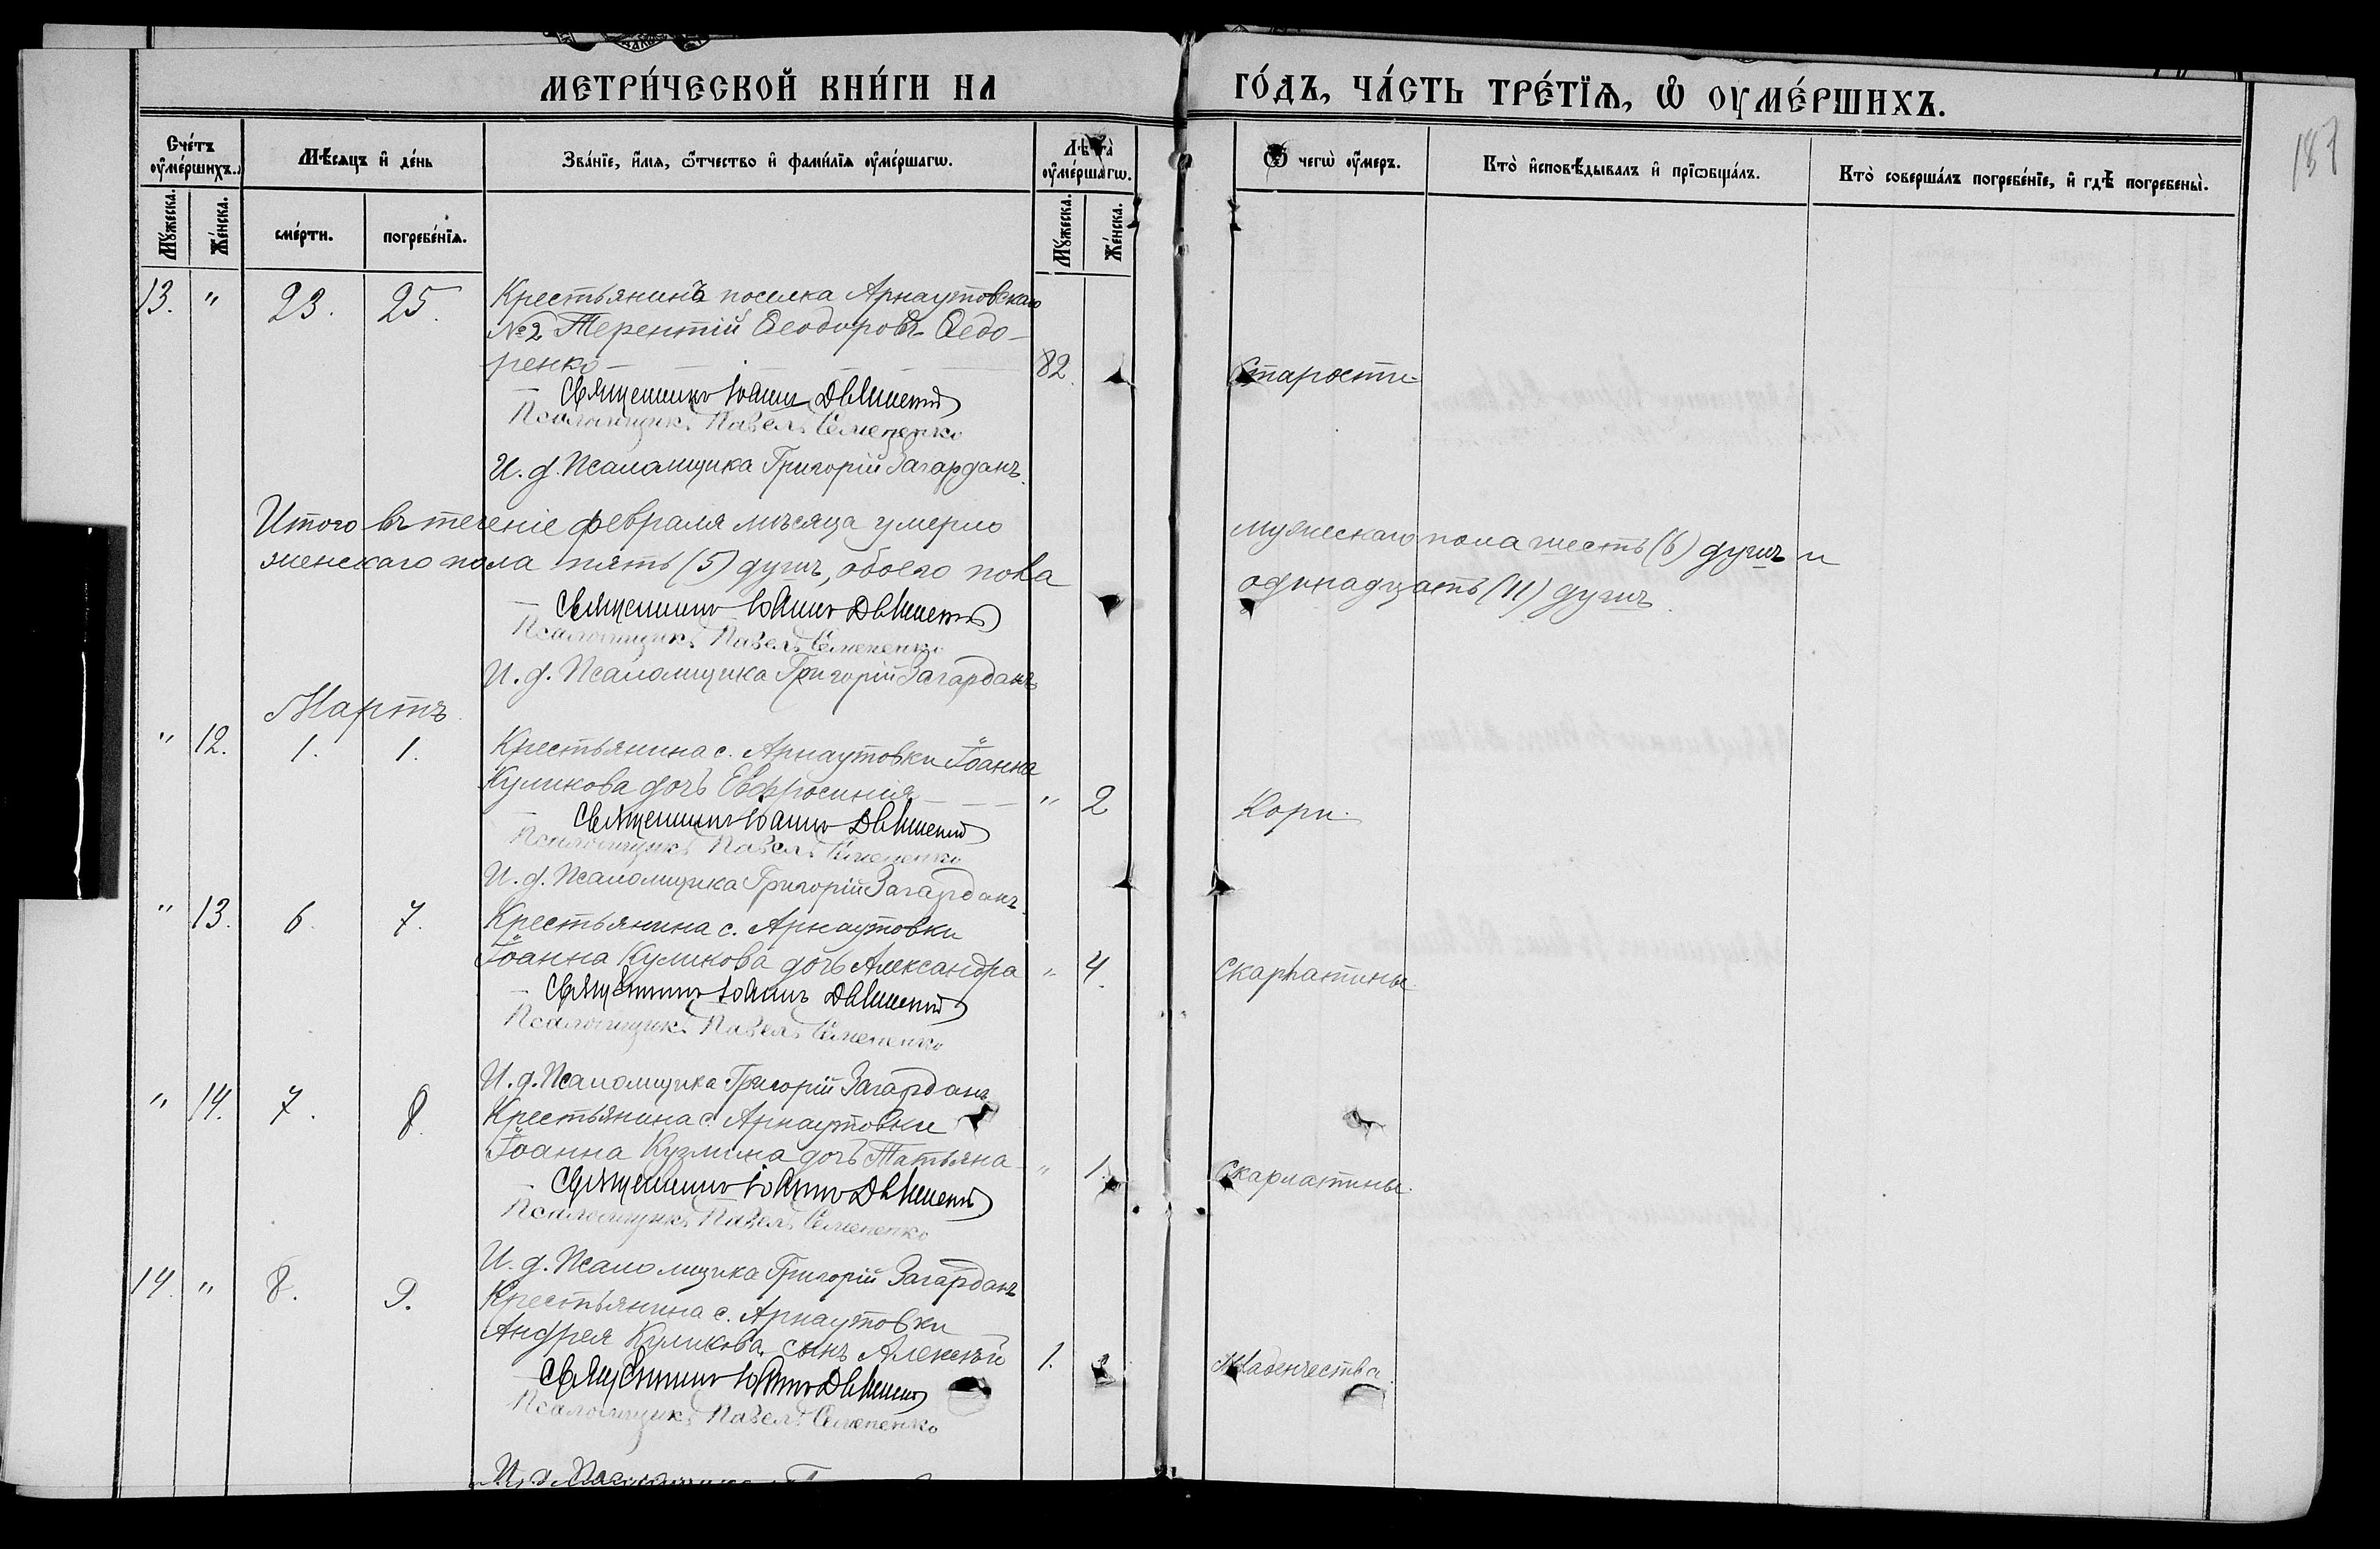 МЕТРИ́ЧЕСКОЙ КНИ́ГИ НА ГО́ДЪ, ЧА́СТЬ ТРЕ́ТЇѦ, Ѡ҆ ОУМЕ́РШИХЪ.
187
Сче́тъ оумершихъ.
Мѣсяцъ и де́нь
Зва́нїе, и҆мя, ѿтчество и҆ фами́лїя оуме́ршагѡ.
Лѣта̀ оуме́ршагѡ.
Ѿ чегѡ̀ оу́меръ.
Кто̀ исповѣ́дывалъ и҆ прїѡбща́лъ.
Кто̀ соверша́лъ погребе́нїе, и҆ гдѣ̀ погребены̀.
Му́жеска.
Же́нска.
сме́рти.
погребе́нїя.
Му́жеска.
Же́нска.
13. " 23. 25. Крестьянинъ поселка Арнаутовскаго
№2 Терентій Ѳеодоровъ Ѳедо-
ренко 82. Старости
Священникъ Іоаннъ
Псаломщикъ Павелъ Семененко
И. д. Псаломщика Григорій Загарданъ.
Итого въ теченіе февраля мѣсяца умерло мужескаго пола шесть (6) душъ и
женскаго пола пять (5) душъ, обоего пола одинадцать (11) душъ.
Священникъ Іоаннъ
Псаломщикъ Павелъ Семененко
И. д. Псаломщика Григорій Загарданъ
Мартъ
" 12. 1. 1. Крестьянина с. Арнаутовки Іоанна
Куликова дочь Евфросинія " 2 Кори.
Священникъ Іоаннъ
Псаломщикъ Павелъ Семененко
И. д. Псаломщика Григорій Загарданъ.
" 13. 6. 7. Крестьянина с. Арнаутовки
Іоанна Куликова дочь Александра " 4. Скарлатины.
Священникъ Іоаннъ
Псаломщикъ Павелъ Семененко
И. д. Псаломщика Григорій Загарданъ
" 14. 7. 8. Крестьянина с. Арнаутовки
Іоанна Кузмина дочь Татьяна " 1. Скарлатины.
Священникъ Іоаннъ
Псаломщикъ Павелъ Семененко
И. д. Псаломщика Григорій Загарданъ
14. " 8. 9. Крестьянина с. Арнаутовки
Андрея Куликова сынъ Алексѣй 1. Младенчества.
Священникъ Іоаннъ
Псаломщикъ Павелъ Семененко
И. д. Псаломщика